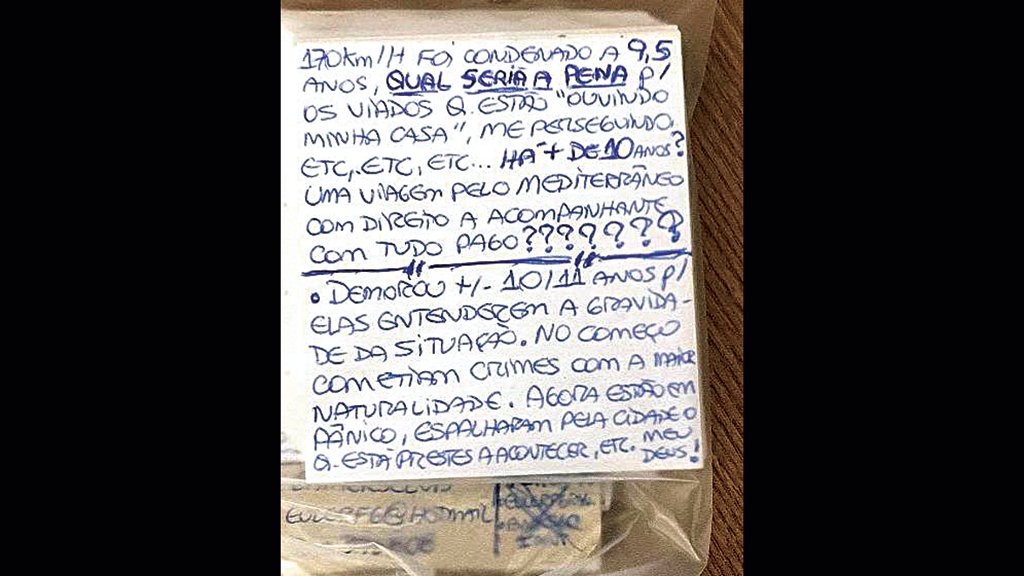 170Km/H FOI CONDENADO A 9,5
ANOS, QUAL SERIA A PENA P/
OS VIADOS Q. ESTÃO "OUVINDO
MINHA CASA", ME PERSEGUINDO,
ETC, ETC, ETC... HÁ + DE 10 ANOS?
UMA VIAGEM PELO MEDITERRÂNEO
COM DIREITO A ACOMPANHANTE
COM TUDO PAGO????????
• DEMOROU +/- 10/11 ANOS P/
ELAS ENTENDEREM A GRAVIDA-
DE DA SITUAÇÃO. NO COMEÇO
COMETIAM CRIMES COM A MAIOR
NATURALIDADE. AGORA ESTÃO EM
PÂNICO, ESPALHARAM PELA CIDADE O
Q. ESTÁ PRESTES A ACONTECER, ETC. MEU
DEUS!